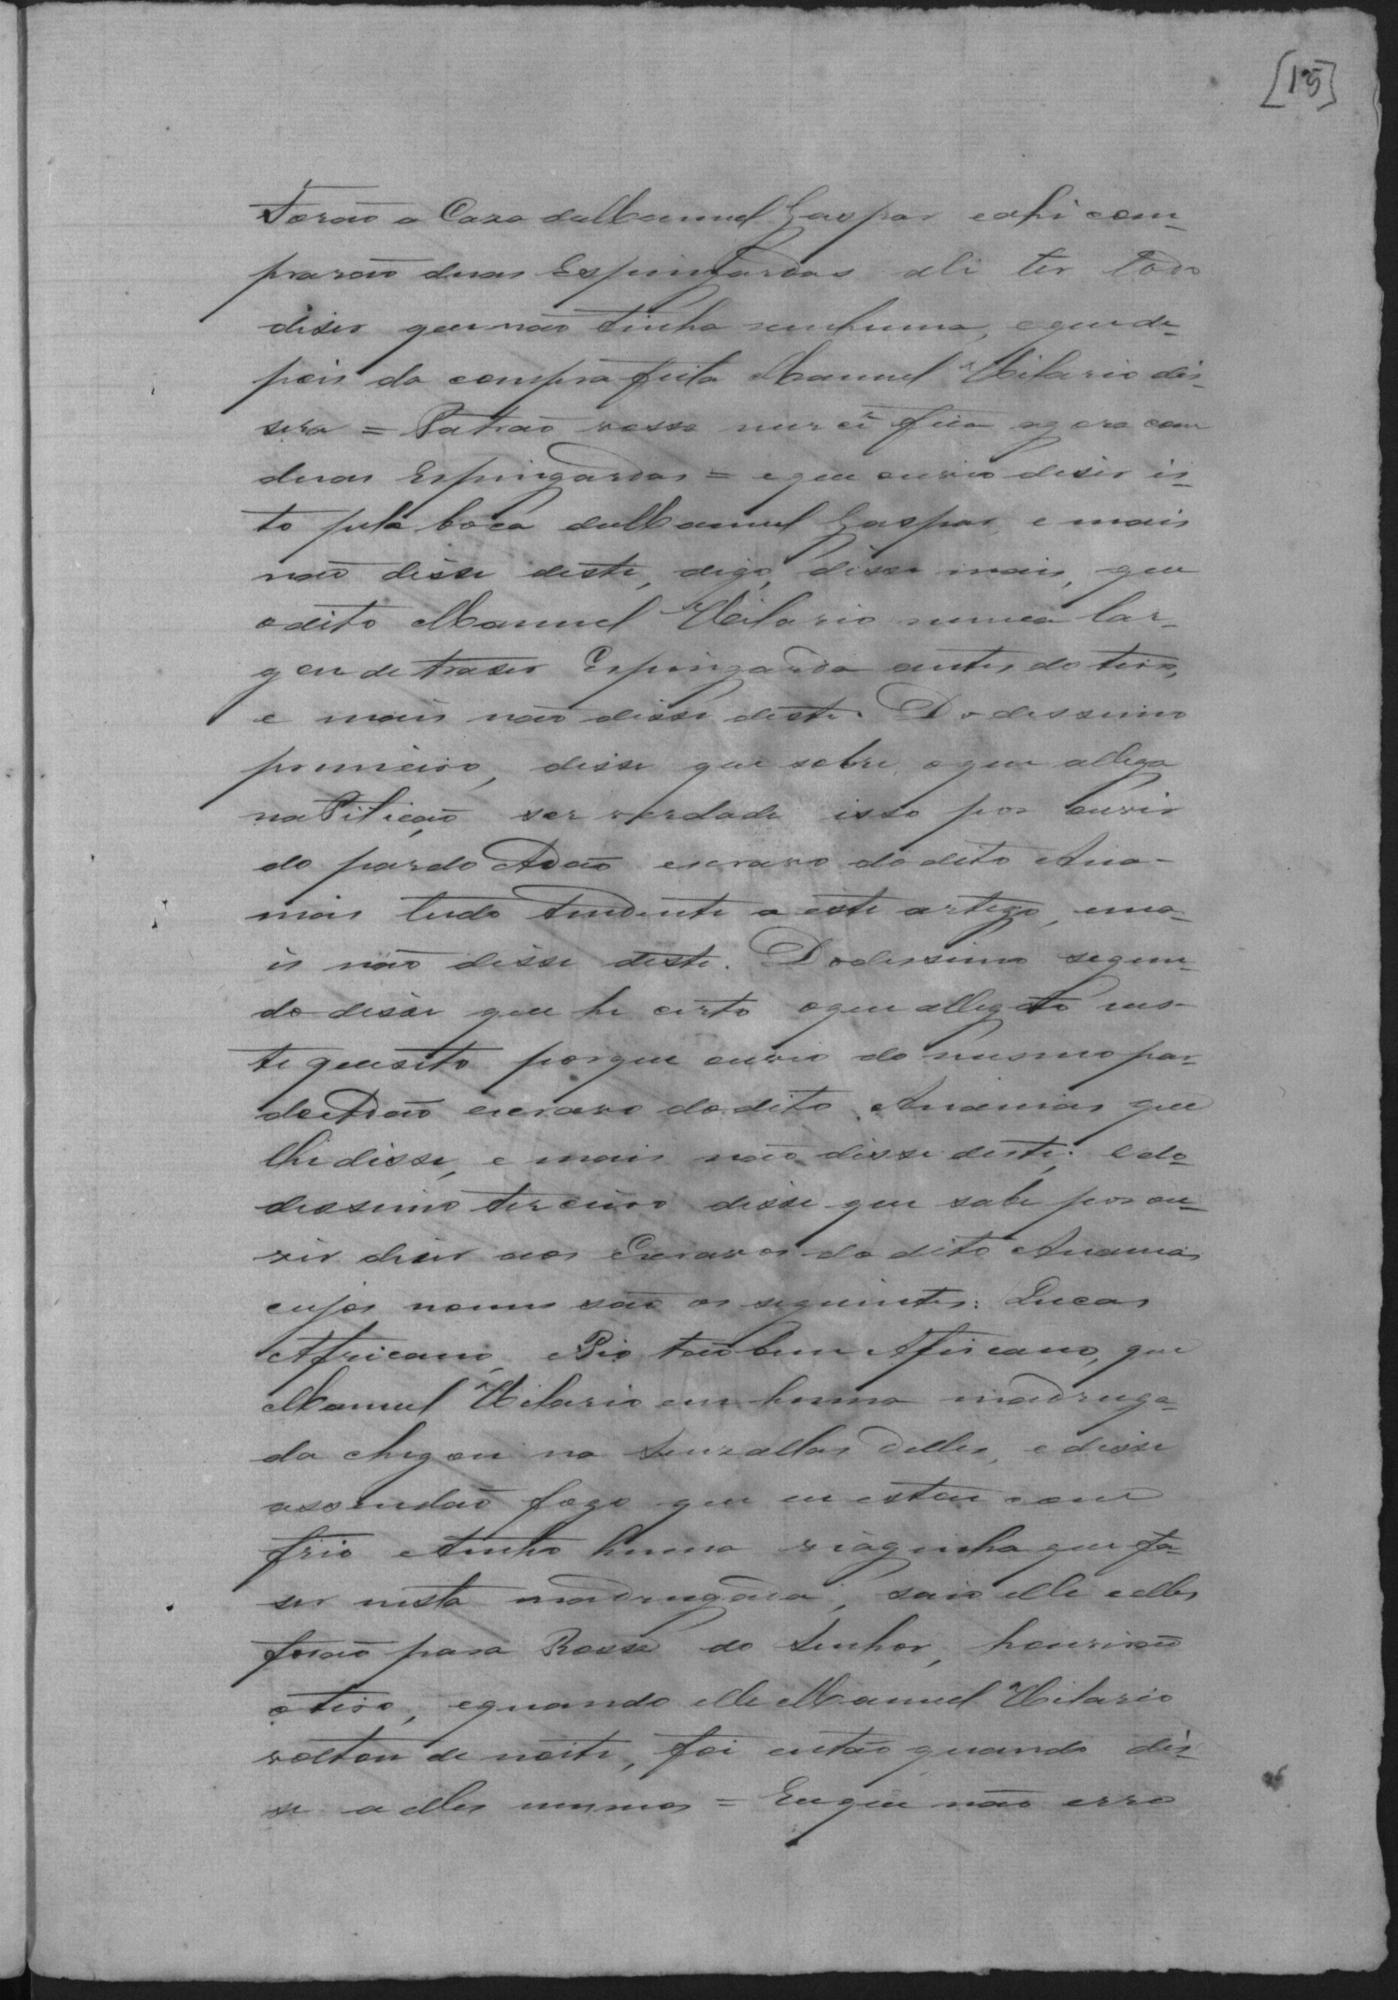 [15]
Forão a Caza de Manuel Gaspar e ahi com-
prarão duas Espingardas ali ter todo
diser que não tinha nenhuma, e que de-
pois da compra feita Manuel Hilario dis-
sera = Patrão vossa mercê fica agora com
duas Espingardas = e que ouvio diser is-
to pela boca de Manuel Gaspar e mais
não disse deste, digo, disse mais, que
o dito Manuel Hilario nunca lar-
gou de traser Espingarda antes do tiro,
e mais não disse deste. Dodessimo
primeiro, disse que sobre o que allega
na Pitição ser verdade isso por ouvir
do pardo Adão escravo do dito Ana-
nias tudo tendente a este artigo, e ma-
is não disse deste. Dodessimo segun-
do disse que he certo o que allegado nes-
te quesito porque ouvio do mesmo par-
do Adão escravo do dito Ananias que
lhe disse, e mais não disse deste; e do
dessimo terceiro disse que sabe por ou-
vir diser aos Escravos do dito Ananias
cujos nomes são os seguintes: Lucas
Africano, e Pio tãobem Africano, que
Manuel Hilario em huma madruga-
da chegou na senzallas delles, e disse
assendão fogo que eu estou com
frio e tenho huma viaginha que fa-
ser nesta madrugada; saio elle e elles
forão para Rossa do Senhor, houvirão
o tiro, e quando elle Manuel Hilario
voltou de noite, foi então quando dis-
se a elles mesmos = Eu que não erro